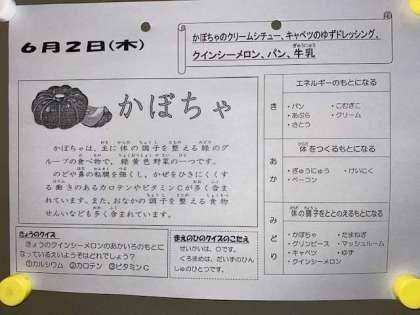 6月2日(木)
かぼちゃのクリームシチュー、キャベツのゆずドレッシング、
クインシーメロン、パン、牛乳
ぎゅうにゅう
かぼちゃ
かぼちゃは、主に体の調子を整える緑のグ
ループの食べ物で、緑黄色野菜の一つです。
のどや鼻の粘膜を強くし、かぜをひきにくくす
る働きのあるカロテンやビタミンCが多く含ま
れています。また、おなかの調子を整える食物
せんいなども多く含まれています。
きょうのクイズ
きょうのクインシーメロンのあかいろのもとに
なっているえいようそはどれでしょう?
①カルシウム ②カロテン ③ビタミンC
まえのひのクイズのこたえ
せいかいは、○です。
くろまめは、だいずのひんしゅのひとつです。
き
エネルギーのもとになる
・パン ・こむぎこ
・あぶら ・クリーム
・さとう
あか
体をつくるもとになる
・ぎゅうにゅう ・けいにく
・ベーコン
みどり
体の調子をととのえるもとになる
・かぼちゃ ・たまねぎ
・グリンピース ・マッシュルーム
・キャベツ ・ゆず
・クインシーメロン